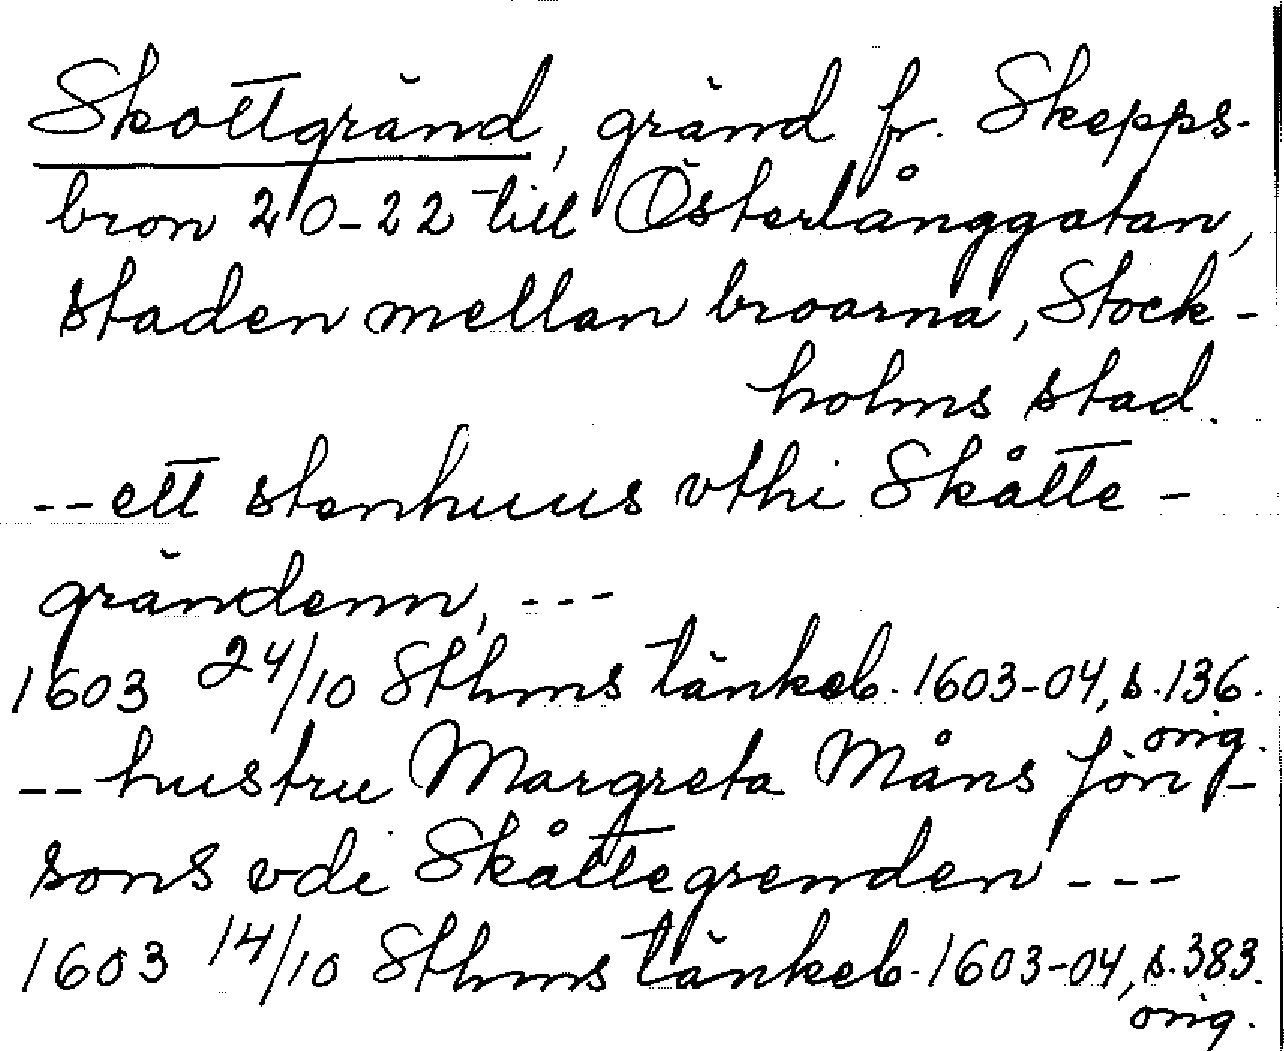 Skottgränd, gränd fr. Skepps-
bron 20-22 till Österlånggatan,
staden mellan broarna, Stock-
holms stad.
--ett stenhuus vthi Skåtte-
grändenn, ---
1603 24/10 Sthms tänkeb. 1603-04, s. 136.
orig.
--hustru Margreta Måns Jön-
sons vdi Skåttegrenden ---
1603 14/10 Sthms tänkeb. 1603-04, s. 383.
orig.